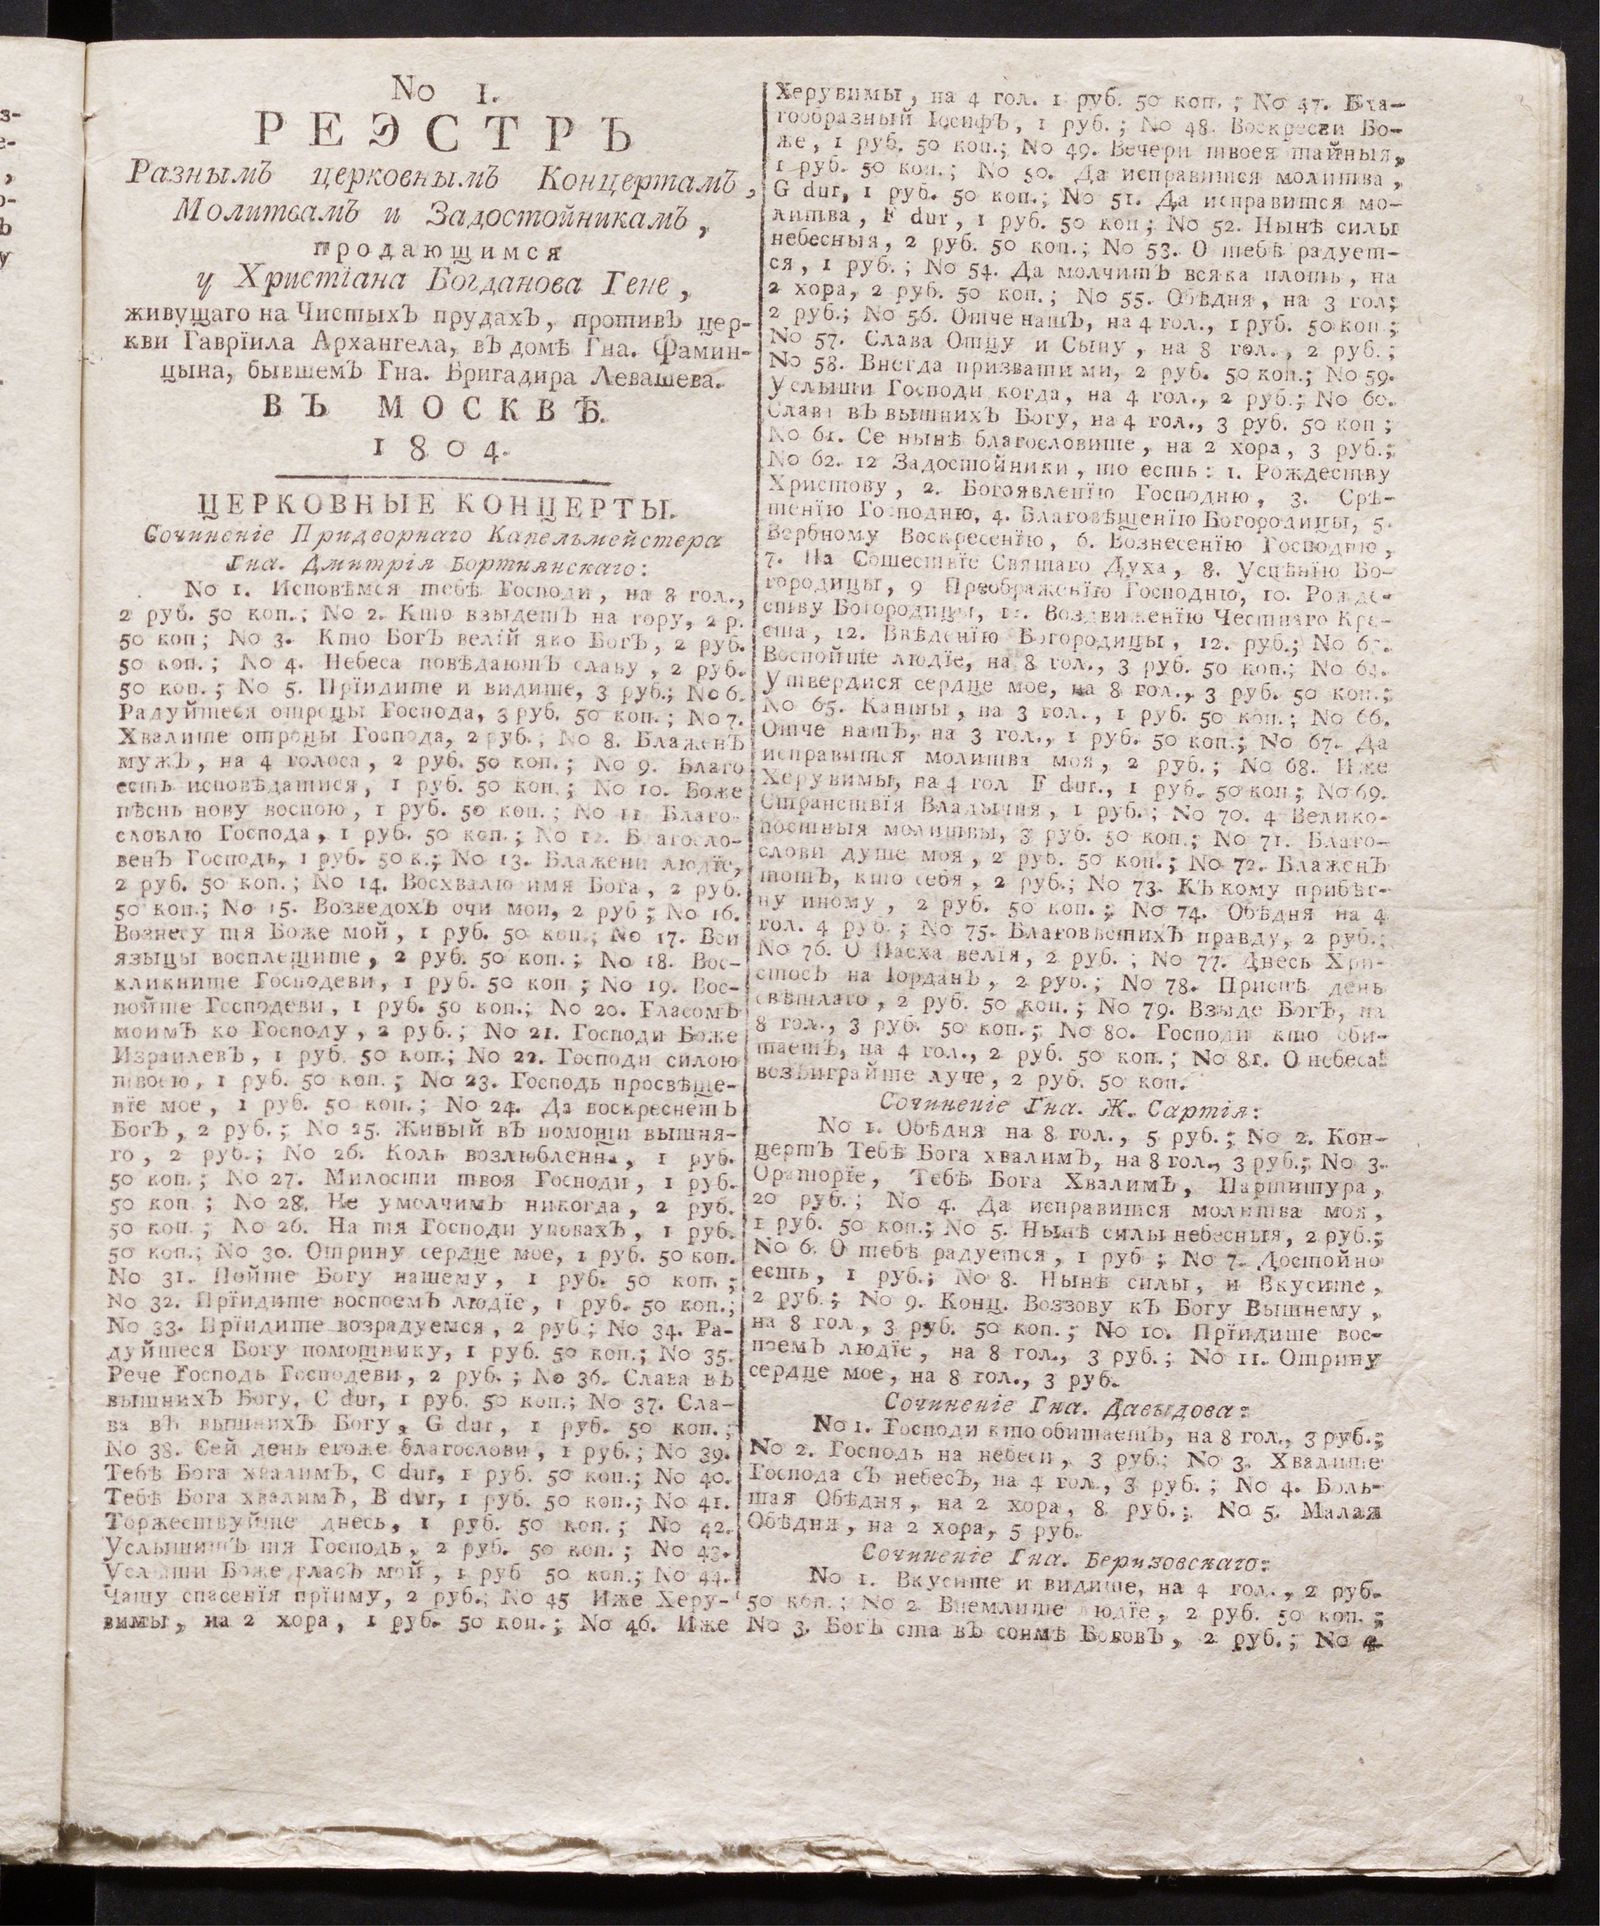 No 1.
РЕЭСТРЪ
Разнымъ церковнымъ Концертамъ,
Молитвамъ и Задостойникамъ,
продающимся
у Христіана Богданова Гене,
живущаго на Чистыхъ прудахъ, противъ цер-
кви Гаврїила Архангела, въ домѣ Гна. Фамин-
цына, бывшемъ Гна. Бригадира Левашева.
ВЪ МОСКВѢ.
1804.
ЦЕРКОВНЫЕ КОНЦЕРТЫ.
Сочиненіе Придворнаго Капельмейстера
Гна. Дмитрія Бортнянскаго:
No 1. Исповѣмся тебѣ Господи, на 8 гол.,
2 руб. 50 коп.; No 2. Кто взыдетъ на гору, 2 р.
50 коп; No 3. Кто Богъ велїй яко Богъ, 2 руб.
50 коп.; No 4. Небеса повѣдаютъ славу, 2 руб.
50 коп.; No 5. Прїидите и видите, 3 руб.; No 6.
Радуйтеся отроцы Господа, 3 руб. 50 коп.; No 7.
Хвалите отроцы Господа, 2 руб.; No 8. Блаженъ
мужъ, на 4 голоса, 2 руб. 50 коп.; No 9. Благо
есть исповѣдатися, 1 руб. 50 коп.; No 10. Боже
пѣснь нову воспою, 1 руб. 50 коп.; No 11 Благо-
словлю Господа, 1 руб. 50 коп.; No 12. Благосло-
венъ Господь, 1 руб. 50 к.; No 13. Блажени людїе,
2 руб. 50 коп.; No 14. Восхвалю имя Бога, 2 руб.
50 коп.; No 15. Возведохъ очи мои, 2 руб; No 16.
Вознесу тя Боже мой, 1 руб. 50 коп.; No 17. Вси
языцы восплещите, 2 руб. 50 коп.; No 18. Вос-
кликните Господеви, 1 руб. 50 коп; No 19. Вос-
пойте Господеви, 1 руб. 50 коп.; No 20. Гласомъ
моимъ ко Господу, 2 руб.; No 21. Господи Боже
Израилевъ, 1 руб. 50 коп.; No 22. Господи силою
твоею, 1 руб. 50 коп.; No 23. Господь просвѣще-
нїе мое, 1 руб. 50 коп.; No 24. Да воскреснетъ
Богъ, 2 руб.; No 25. Живый въ помощи вышня-
го, 2 руб.; No 26. Коль возлюбленна, 1 руб.
50 коп.; No 27. Милости твоя Господи, 1 руб.
50 коп; No 28. Не умолчимъ никогда, 2 руб.
50 коп.; No 26. На тя Господи уповахъ, 1 руб.
50 коп.; No 30. Отрину сердце мое, 1 руб. 50 коп.
No 31. Пойте Богу нашему, 1 руб. 50 коп.;
No 32. Прїидите воспоемъ людїе, 1 руб. 50 коп.;
No 33. Прїидите возрадуемся, 2 руб; No 34. Ра-
дуйтеся Богу помощнику, 1 руб. 50 коп.; No 35.
Рече Господь Господеви, 2 руб.; No 36. Слава въ
вышнихъ Богу, C dur, 1 руб. 50 коп.; No 37. Сла-
ва въ вышнихъ Богу, G dur, 1 руб. 50 коп.;
No 38. Сей день егоже благослови, 1 руб.; No 39.
Тебѣ Бога хвалимъ, C dur, 1 руб. 50 коп.; No 40.
Тебѣ Бога хвалимъ, B dvr, 1 руб. 50 коп.; No 41.
Торжествуйте днесь, 1 руб. 50 коп.; No 42.
Услышитъ тя Господь, 2 руб. 50 коп.; No 43.
Услыши Боже гласъ мой, 1 руб 50 коп.; No 44.
Чашу спасенїя прїиму, 2 руб.; No 45 Иже Херу-
вимы, на 2 хора, 1 руб. 50 коп.; No 46. Иже
Херувимы, на 4 гол. 1 руб. 50 коп.; No 47. Бла-
гообразный Іосифъ, 1 руб.; No 48. Воскресни Бо-
же, 1 руб. 50 коп.; No 49. Вечери твоея тайныя,
1 руб. 50 коп.; No 50. Да исправится молитва,
G dur, 1 руб. 50 коп.; No 51. Да исправится мо-
литва, F dur, 1 руб. 50 коп; No 52. Нынѣ силы
небесныя, 2 руб. 50 коп.; No 53. О тебѣ радует-
ся, 1 руб.; No 54. Да молчитъ всяка плоть, на
2 хора, 2 руб. 50 коп.; No 55. Обѣдня, на 3 гол;
2 руб.; No 56. Отче нашъ, на 4 гол., 1 руб. 50 коп;
No 57. Слава Отцу и Сыну, на 8 гол., 2 руб.;
No 58. Внегда призвати ми, 2 руб. 50 коп.; No 59.
Услыши Господи когда, на 4 гол., 2 руб.; No 60.
Слава въ вышнихъ Богу, на 4 гол., 3 руб. 50 коп;
No 61. Се нынѣ благословите, на 2 хора, 3 руб.;
No 62. 12 Задостойники, то есть: 1. Рождеству
Христову, 2. Богоявленїю Господню, 3. Срѣ-
тенїю Господню, 4. Благовѣщенїю Богородицы, 5.
Вербному Воскресенїю, 6. Вознесенїю Господню,
7. На Сошествїе Святаго Духа, 8. Успѣнїю Бо-
городицы, 9 Преображенїю Господню, 10. Рожде-
ству Богородицы, 11. Воздвиженїю Честнаго Кре-
ста, 12. Введенїю Богородицы, 12. руб.; No 63.
Воспойте людїе, на 8 гол., 3 руб. 50 коп.; No 64.
Утвердися сердце мое, на 8 гол., 3 руб. 50 коп.;
No 65. Канты, на 3 гол., 1 руб. 50 коп.; No 66.
Отче нашъ, на 3 гол., 1 руб. 50 коп.; No 67. Да
исправится молитва моя, 2 руб.; No 68. Иже
Херувимы, на 4 гол F dur., 1 руб. 50 коп; No 69.
Странствїя Владычня, 1 руб.; No 70. 4 Велико-
постныя молитвы, 3 руб. 50 коп.; No 71. Благо-
слови душе моя, 2 руб. 50 коп.; No 72. Блаженъ
тотъ, кто себя, 2 руб.; No 73. Къ кому прибѣг-
ну иному, 2 руб. 50 коп.; No 74. Обѣдня на 4
гол. 4 руб.; No 75. Благовѣстихъ правду, 2 руб.;
No 76. О Пасха велїя, 2 руб.; No 77. Днесь Хри-
стосъ на Іорданъ, 2 руб.; No 78. Приспѣ день
свѣтлаго, 2 руб. 50 коп.; No 79. Взыде Богъ, на
8 гол., 3 руб. 50 коп.; No 80. Господи кто оби-
таетъ, на 4 гол., 2 руб. 50 коп.; No 81. О небеса!
возъиграйте луче, 2 руб. 50 коп.
Сочиненіе Гна. Ж. Сартія:
No 1. Обѣдня на 8 гол., 5 руб.; No 2. Кон-
цертъ Тебѣ Бога хвалимъ, на 8 гол., 3 руб.; No 3.
Ораторїе, Тебѣ Бога Хвалимъ, Партитура,
20 руб.; No 4. Да исправится молитва моя,
1 руб. 50 коп.; No 5. Нынѣ силы небесныя, 2 руб.;
No 6. О тебѣ радуется, 1 руб; No 7. Достойно
есть, 1 руб.; No 8. Нынѣ силы, и Вкусите,
2 руб.; No 9. Конц. Воззову къ Богу Вышнему,
на 8 гол, 3 руб. 50 коп.; No 10. Прїидите вос-
поемъ людїе, на 8 гол., 3 руб.; No 11. Отрину
сердце мое, на 8 гол., 3 руб.
Сочиненіе Гна. Давыдова:
No 1. Господи кто обитаетъ, на 8 гол., 3 руб.;
No 2. Господь на небеси, 3 руб.; No 3. Хвалите
Господа съ небесъ, на 4 гол, 3 руб.; No 4. Боль-
шая Обѣдня, на 2 хора, 8 руб.; No 5. Малая
Обѣдня, на 2 хора, 5 руб.
Сочиненіе Гна. Беризовскаго:
No 1. Вкусите и видите, на 4 гол., 2 руб.
50 коп.; No 2 Внемлите людїе, 2 руб. 50 коп.;
No 3. Богъ ста въ сонмѣ Боговъ, 2 руб.; No 4